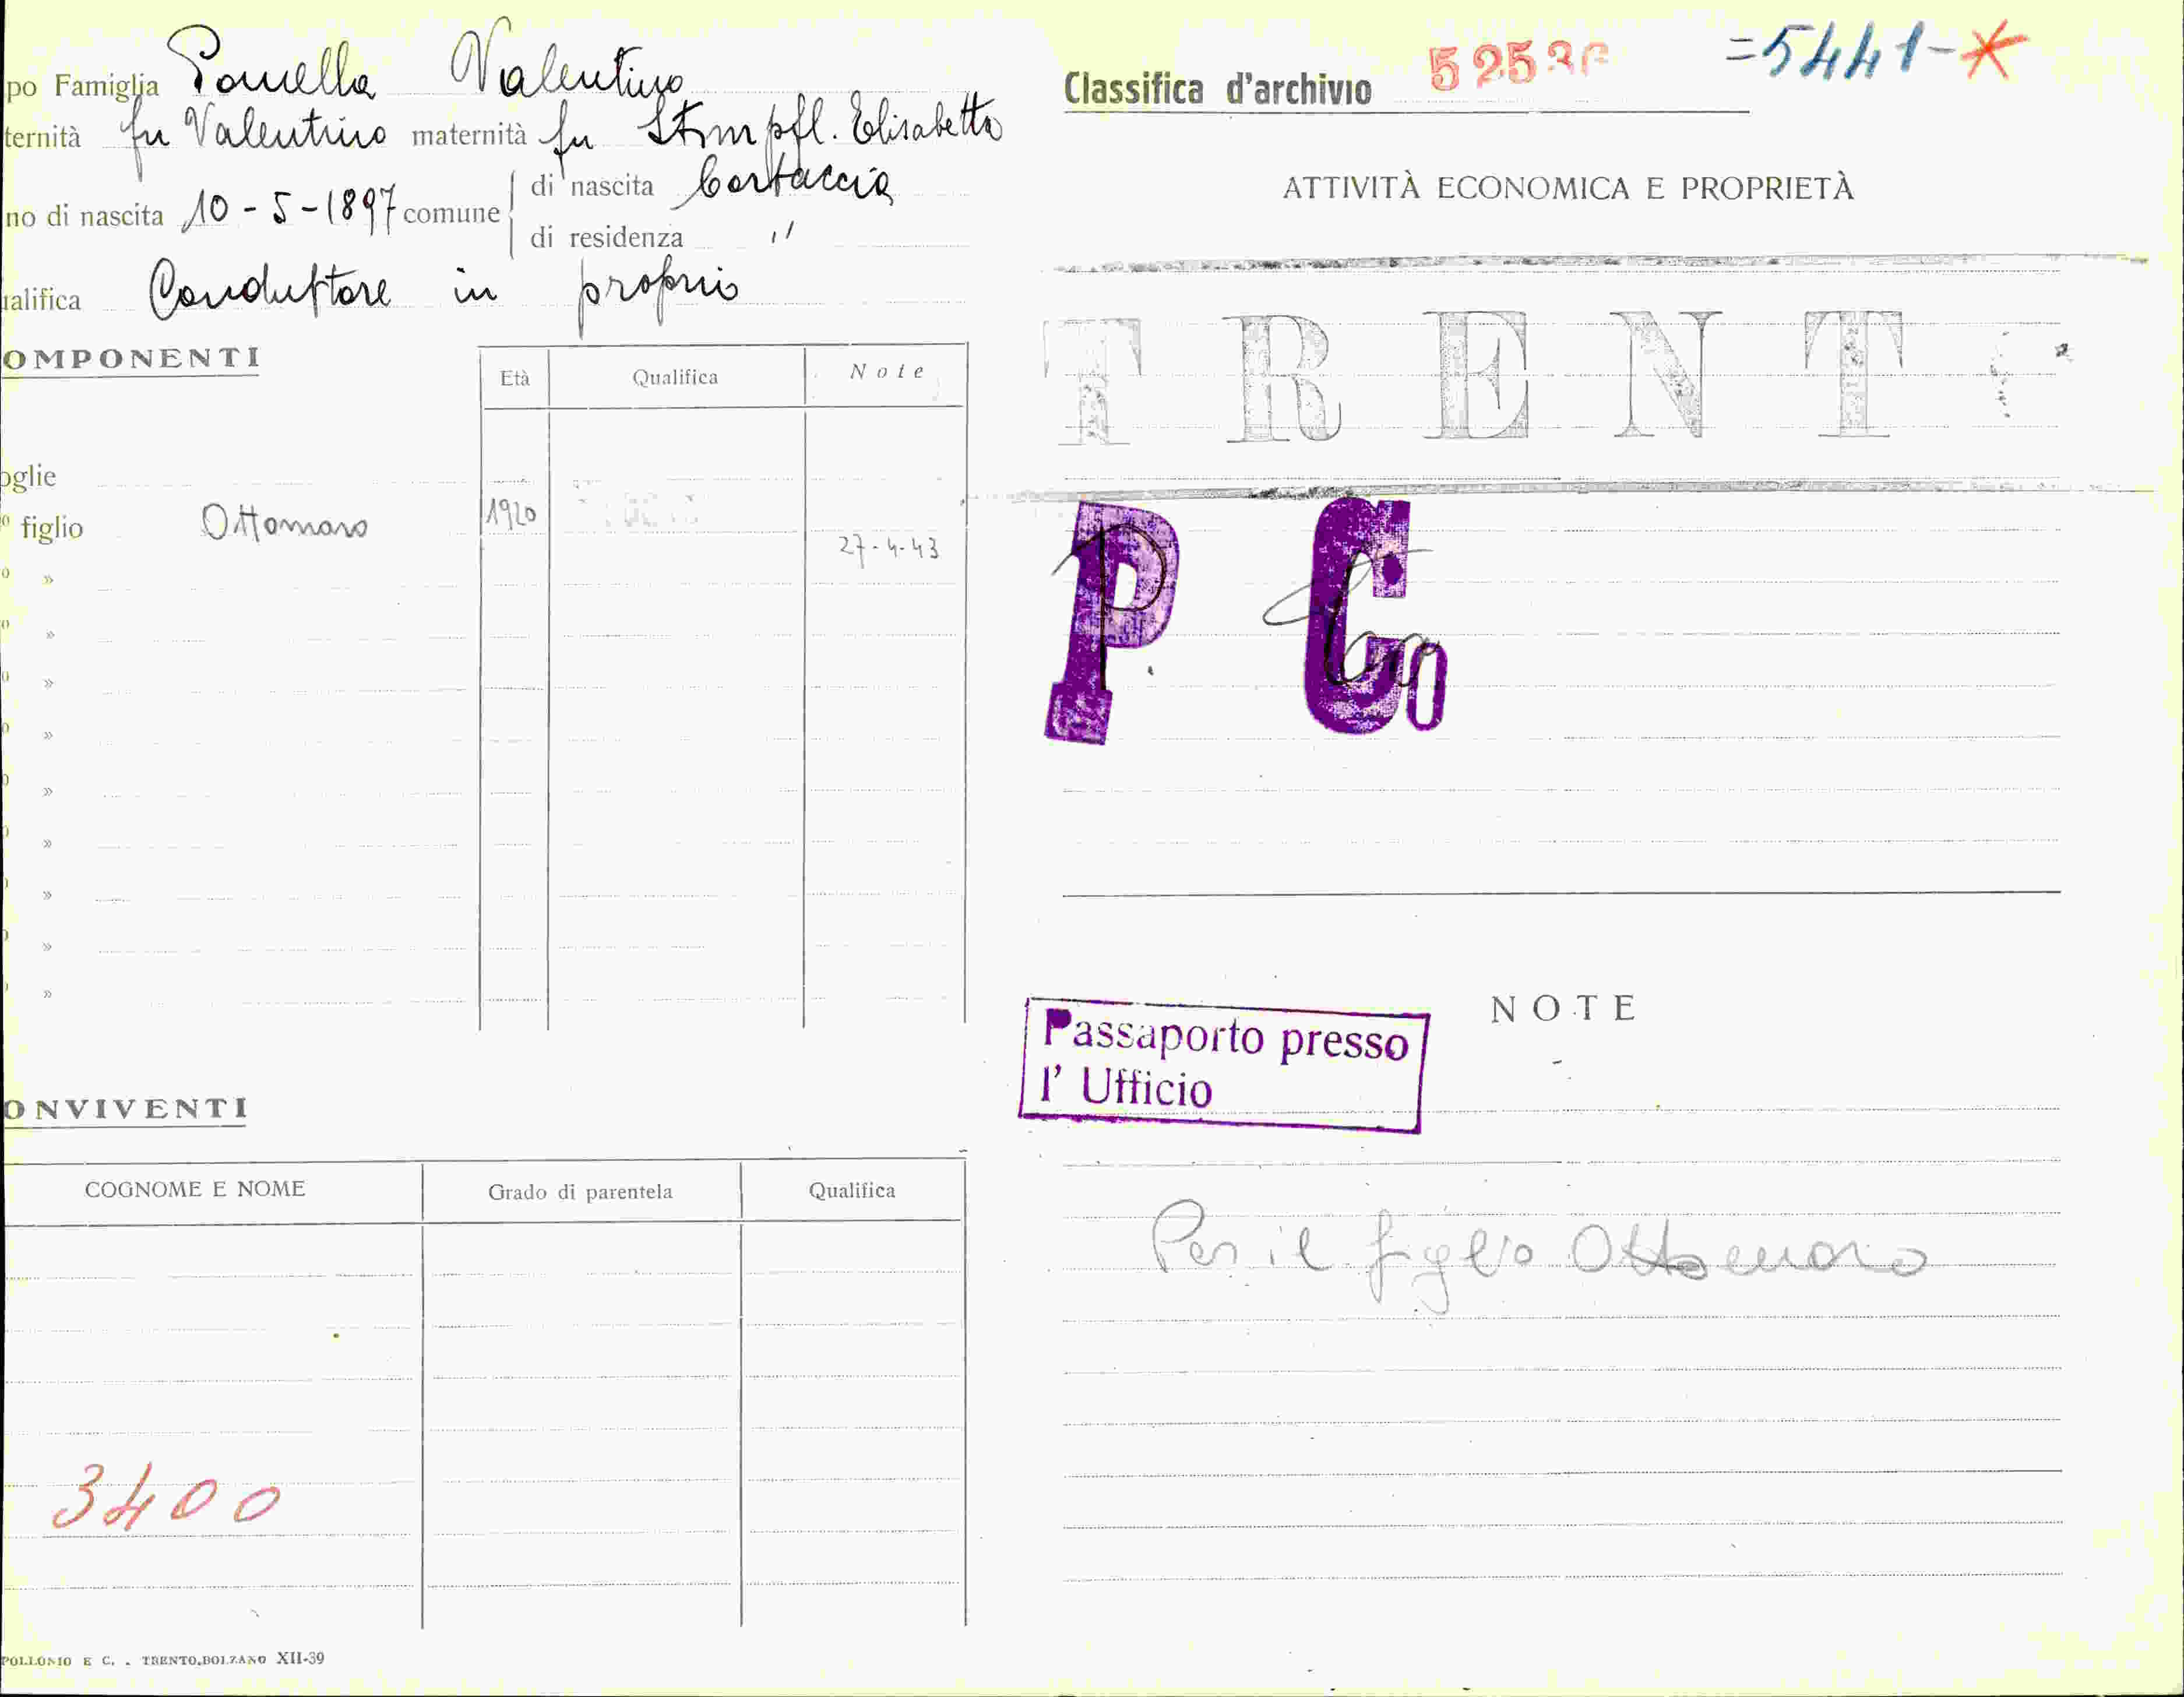 po Famiglia Pomella Valentino
ternità fu Valentino maternità fu Stimpfl. Elisabetta
no di nascita 10-5-1897 comune di nascita Cortaccia
di residenza "
alifica Conduttore in proprio
OMPONENTI
Età Qualifica Note
oglie
º figlio Ottomaro 1920
27-4-43
o »
o »
o »
o »
o »
o »
o »
o »
o »
ONVIVENTI
COGNOME E NOME Grado di parentela Qualifica
3400
POLLONIO E C. . TRENTO.BOLZANO XII-39
Classifica d'archivio =5441-*
ATTIVITÀ ECONOMICA E PROPRIETÀ
TRENT
P C
NOTE
Passaporto presso
l' Ufficio
Per il figlio Ottomaro